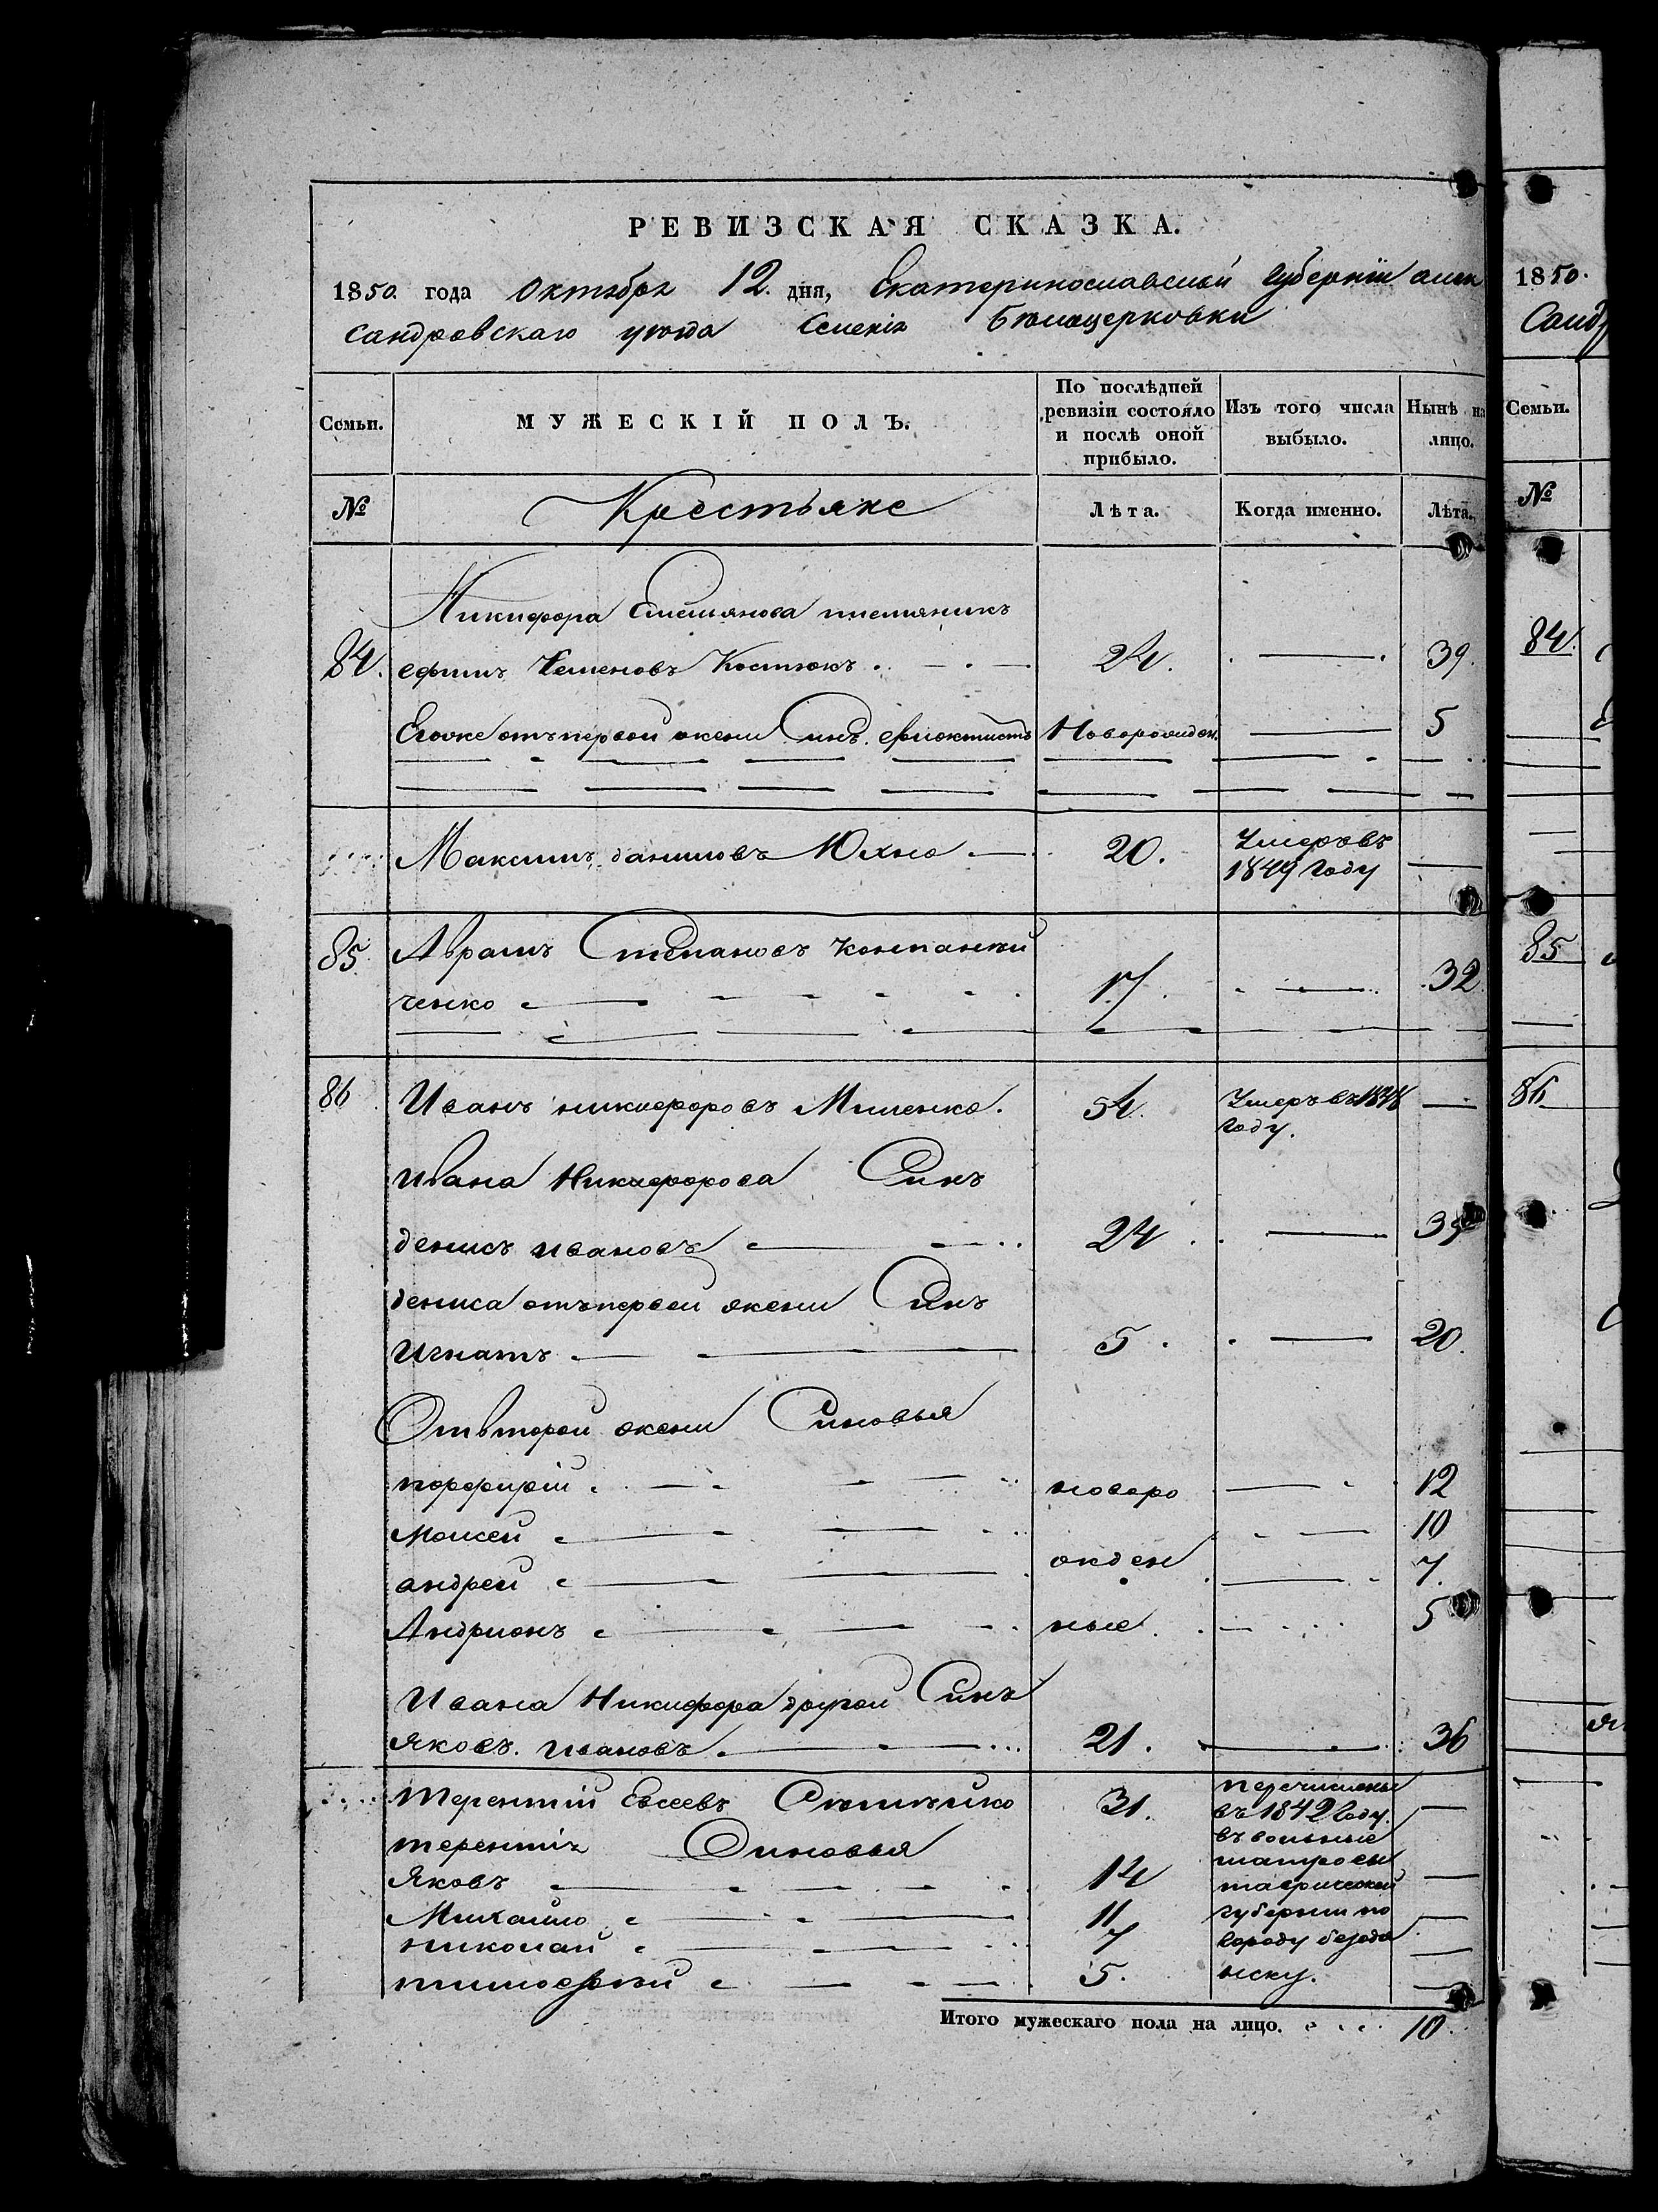 РЕВИЗСКАЯ СКАЗКА.
1850. года октября 12. дня, Екатеринославской Губерніи алек
сандровскаго уезда Селенія Белоцерковки
Семьи.
МУЖЕСКІЙ ПОЛЪ.
По послѣдней ревизіи состояло и послѣ оной прибыло.
Изъ того числа выбыло.
Нынѣ на лицо.
№
Крестьяне
Лѣта.
Когда именно.
Лѣта.
Никифора Емельянова племяникъ
84. ефимъ Семеновъ Костюкъ. 24. 39.
Егоже отъ первой жени Синъ. феоктистъ Новорожден. 5
Максимъ даниловъ Юхно 20. Умеръ въ
1849 Году
85. Аврамъ Степановъ Компаней
ченко 17. 32
86. Иванъ никифоровъ Миленко. 54. Умеръ въ
году.
Ивана Никифорова Синъ
денисъ ивановъ 24. 39
дениса отъ первой жени Синъ
Игнатъ 5. 20.
Отвторой жени Синовья
порфирій новоро 12
Моисей 10
андрей жден 7.
Андріянъ ные. 5
Ивана Никифора другой Синъ
Яковъ. ивановъ. 21. 36
терентій Евсеевъ 31. перечислены
въ 1842 Году.
терентія Синовья въ вольные
матросы
Яковъ 14 таврической
Михайло 11 губерніи по
николай 7 городу
тимофей 5. нску.
Итого мужескаго пола на лицо. 10.
1850.
Санд
Семьи.
№
84.
85
86